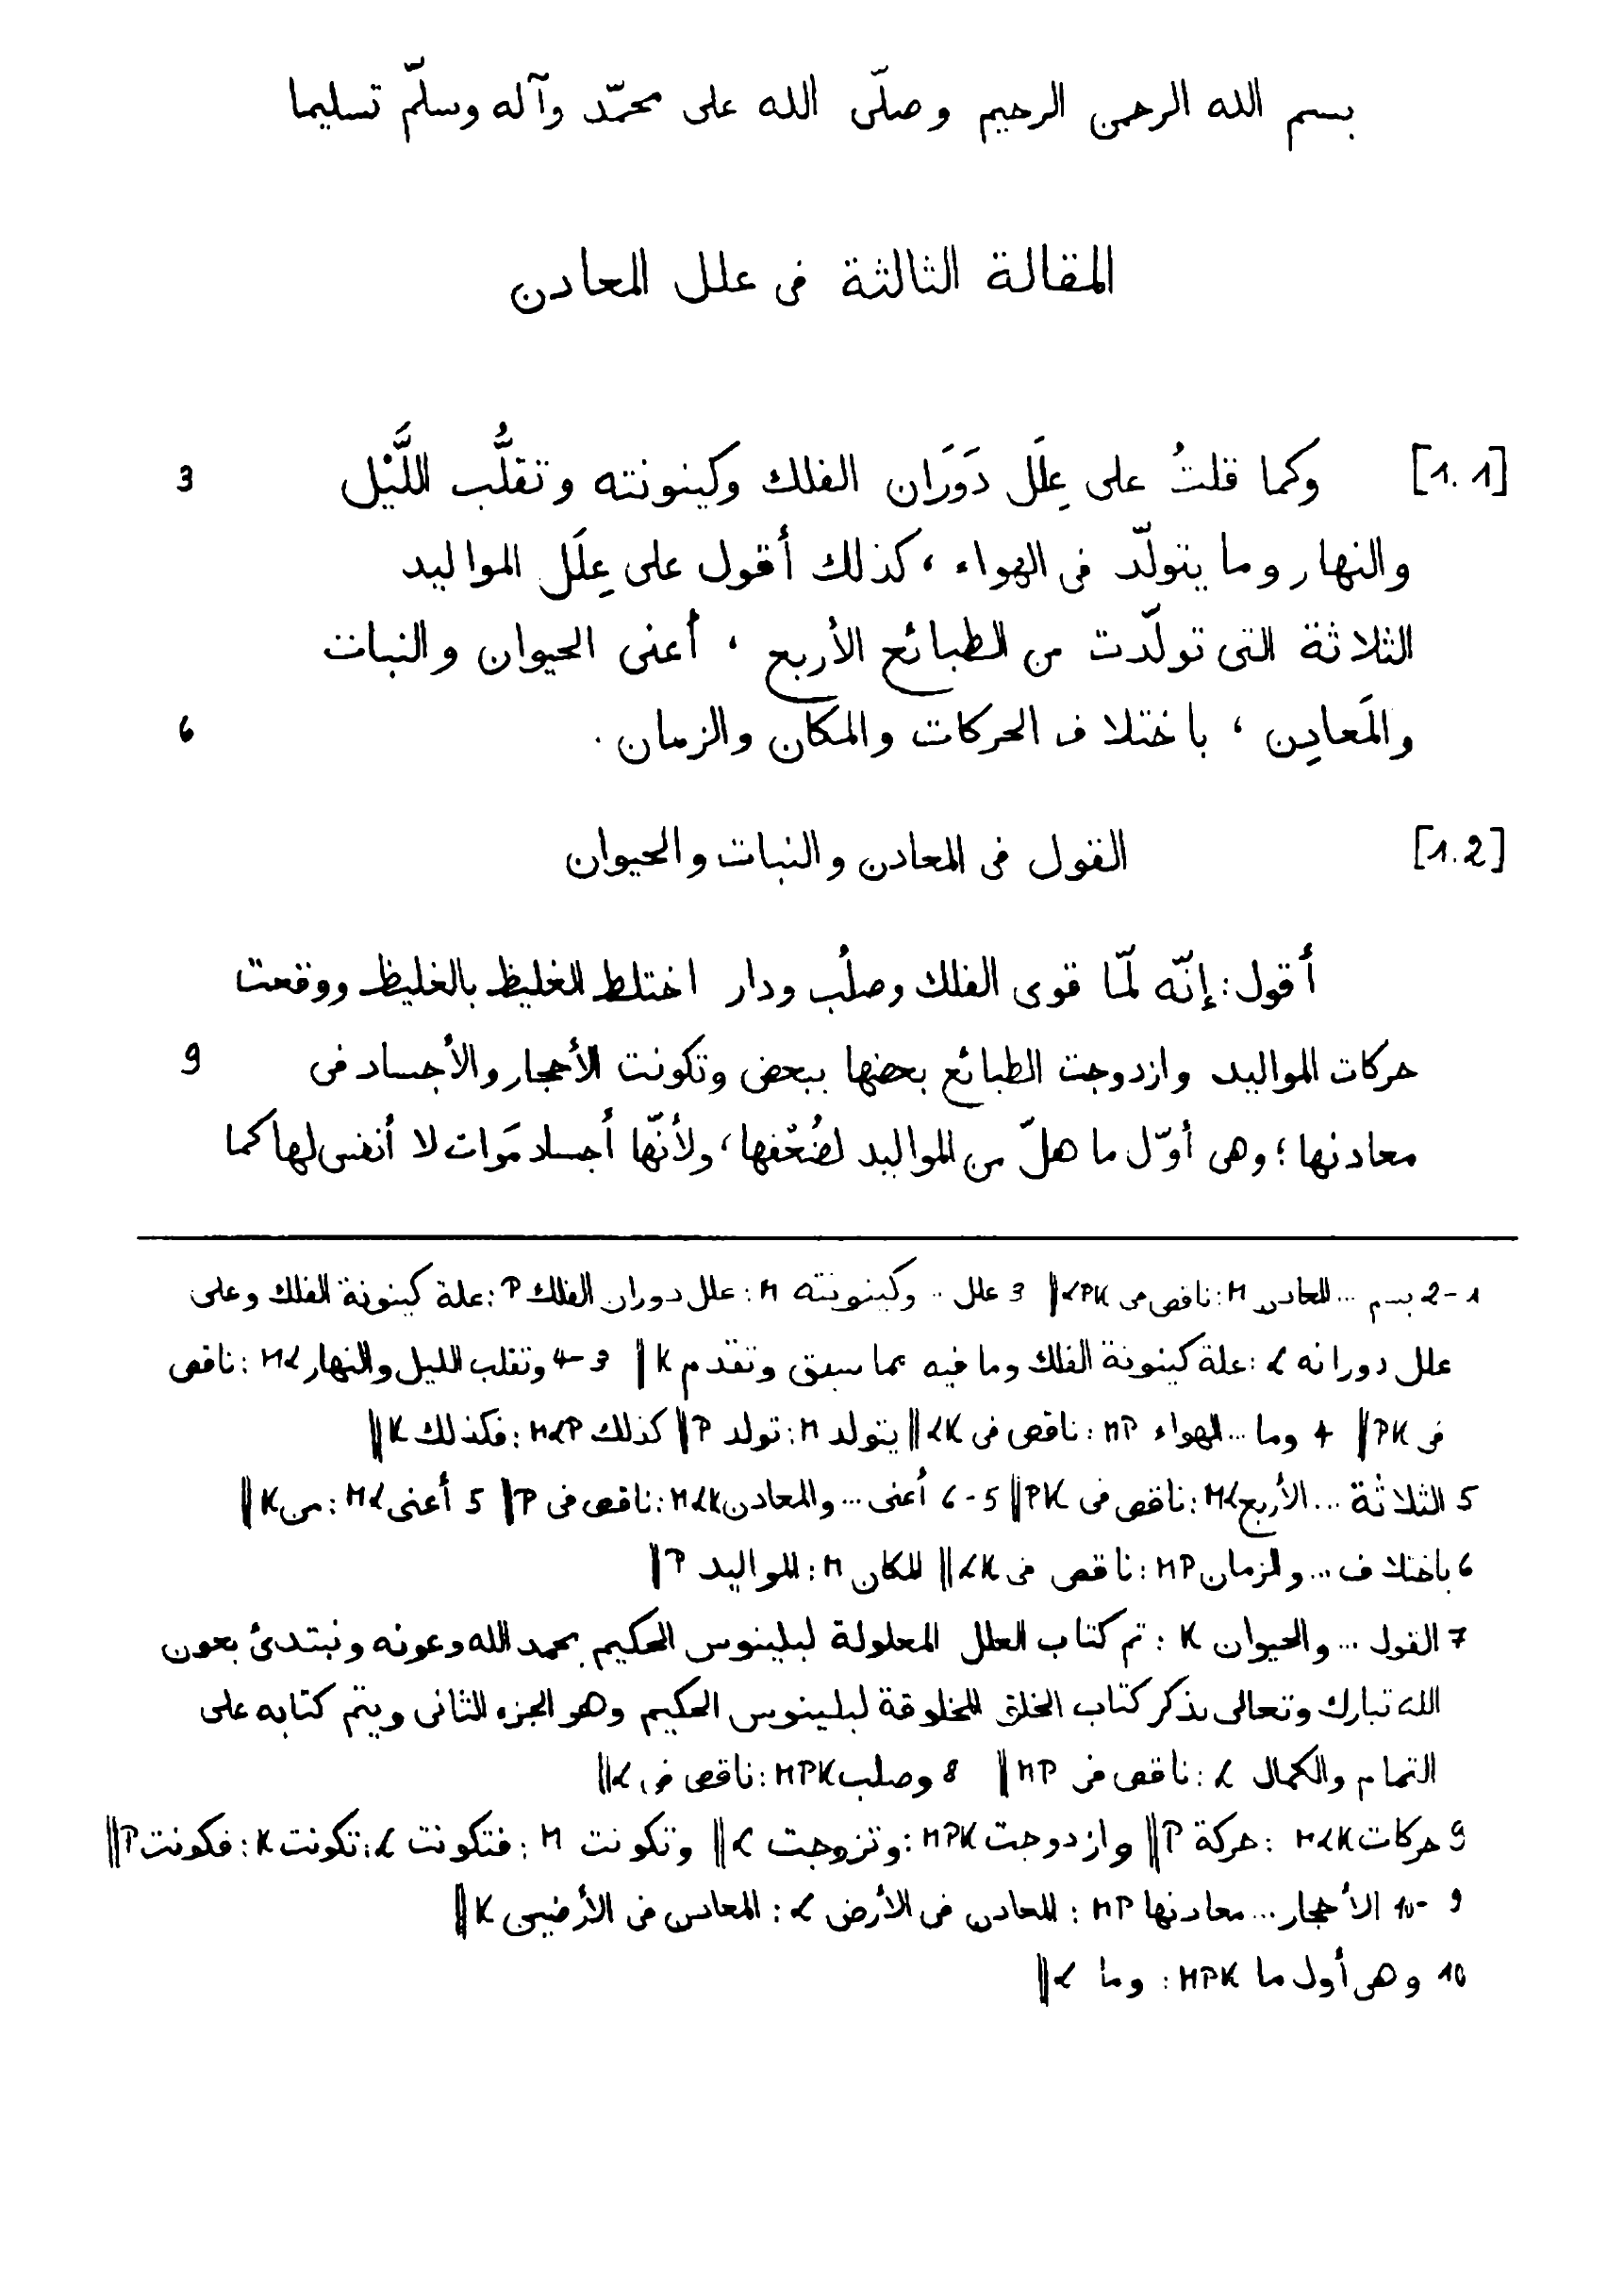 بسم الله الرحمن الرحيم وصلّى الله على محمّد وآله وسلّم تسليما
المقالة الثالثة فى علل المعادن
[1.1] وكما قلتُ على عِلَل دَوَران الفلك وكينونته وتقلُّب اللَّيْل 3
والنهار وما يتولّد فى الهواء ، كذلك أقول على عِلَل المواليد
الثلاثة التى تولّدت من الطبائع الأربع ، أعنى الحيوان والنبات
والمَعادِن ، باختلاف الحركات والمكان والزمان . 6
[1.2] القول فى المعادن والنبات والحيوان
أقول : إنّه لمّا قوى الفلك وصلُب ودار اختلط الغليظ بالغليظ ووقعت
حركات المواليد وازدوجت الطبائع بعضها ببعض وتكونت الأحجار والأجساد فى 9
معادنها ؛ وهى أوّل ما هلّ من المواليد لضُعْفها ، ولأنّها أجساد مَوات لا أنفس لها كما
1-2 بسم ... المعادن M : ناقص من LPK || 3 علل .. وكينونته M : علل دوران الفلك P : علة كينونة الفلك وعلى
علل دورانه L : علة كينونة الفلك وما فيه مما سبق وتقدم K || 3-4 وتقلب الليل والنهار ML : ناقص
فى PK || 4 وما ... الهواء MP : ناقص فى LK || يتولد M : تولد P || كذلك MLP : فكذلك K ||
5 الثلاثة ... الأربع ML : ناقص فى PK || 5-6 أعنى ... والمعادن MLK : ناقص فى P || 5 أعنى ML : من K ||
6 باختلاف ... والزمان MP : ناقص فى LK || المكان M : المواليد P ||
7 القول ... والحيوان K : تم كتاب العلل المعلولة لبلينوس الحكيم بحمد الله وعونه ونبتدئ بعون
الله تبارك وتعالى بذكر كتاب الخلق المخلوقة لبلينوس الحكيم وهو الجزء الثانى ويتم كتابه على
التمام والكمال L : ناقص فى MP || 8 وصلب MPK : ناقص فى L ||
9 حركات MLK : حركة P || وازدوجت MPK : وتزوجت L || وتكونت M : فتكونت L : تكونت K : فكونت P ||
9-10 الأحجار ... معادنها MP : المعادن فى الأرض L : المعادن فى الأرضين K ||
10 وهى أول ما MPK : وما L ||